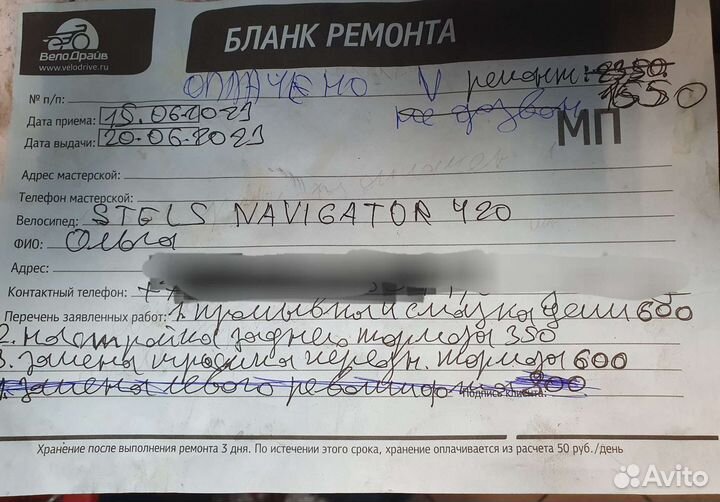 ВелоДрайв
www.velodrive.ru
БЛАНК РЕМОНТА
№ п/п: ОПЛАЧЕНО V ремонт: 2350
1550
Дата приема: 15.06.2021 не дозвон
Дата выдачи: 20.06.2021
МП
Адрес мастерской:
Телефон мастерской:
Велосипед: STELS NAVIGATOR 420
ФИО: Ольга
Адрес:
Контактный телефон: +7
Перечень заявленных работ: 1. промывка и смазка цепи 600
2. настройка заднего тормоза 350
3. замены тросика передн. тормоза 600
замена левого револьшифта 800
Подпись клиента:
Хранение после выполнения ремонта 3 дня. По истечении этого срока, хранение оплачивается из расчета 50 руб./день
Avito